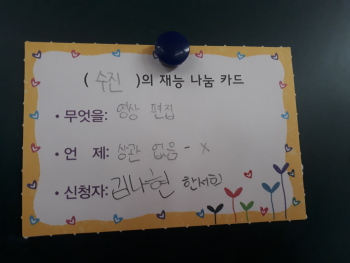 ( 수진 )의 재능 나눔 카드
• 무엇을: 영상 편집
• 언 제: 상관 없음 - x
• 신청자: 김나현 한서희